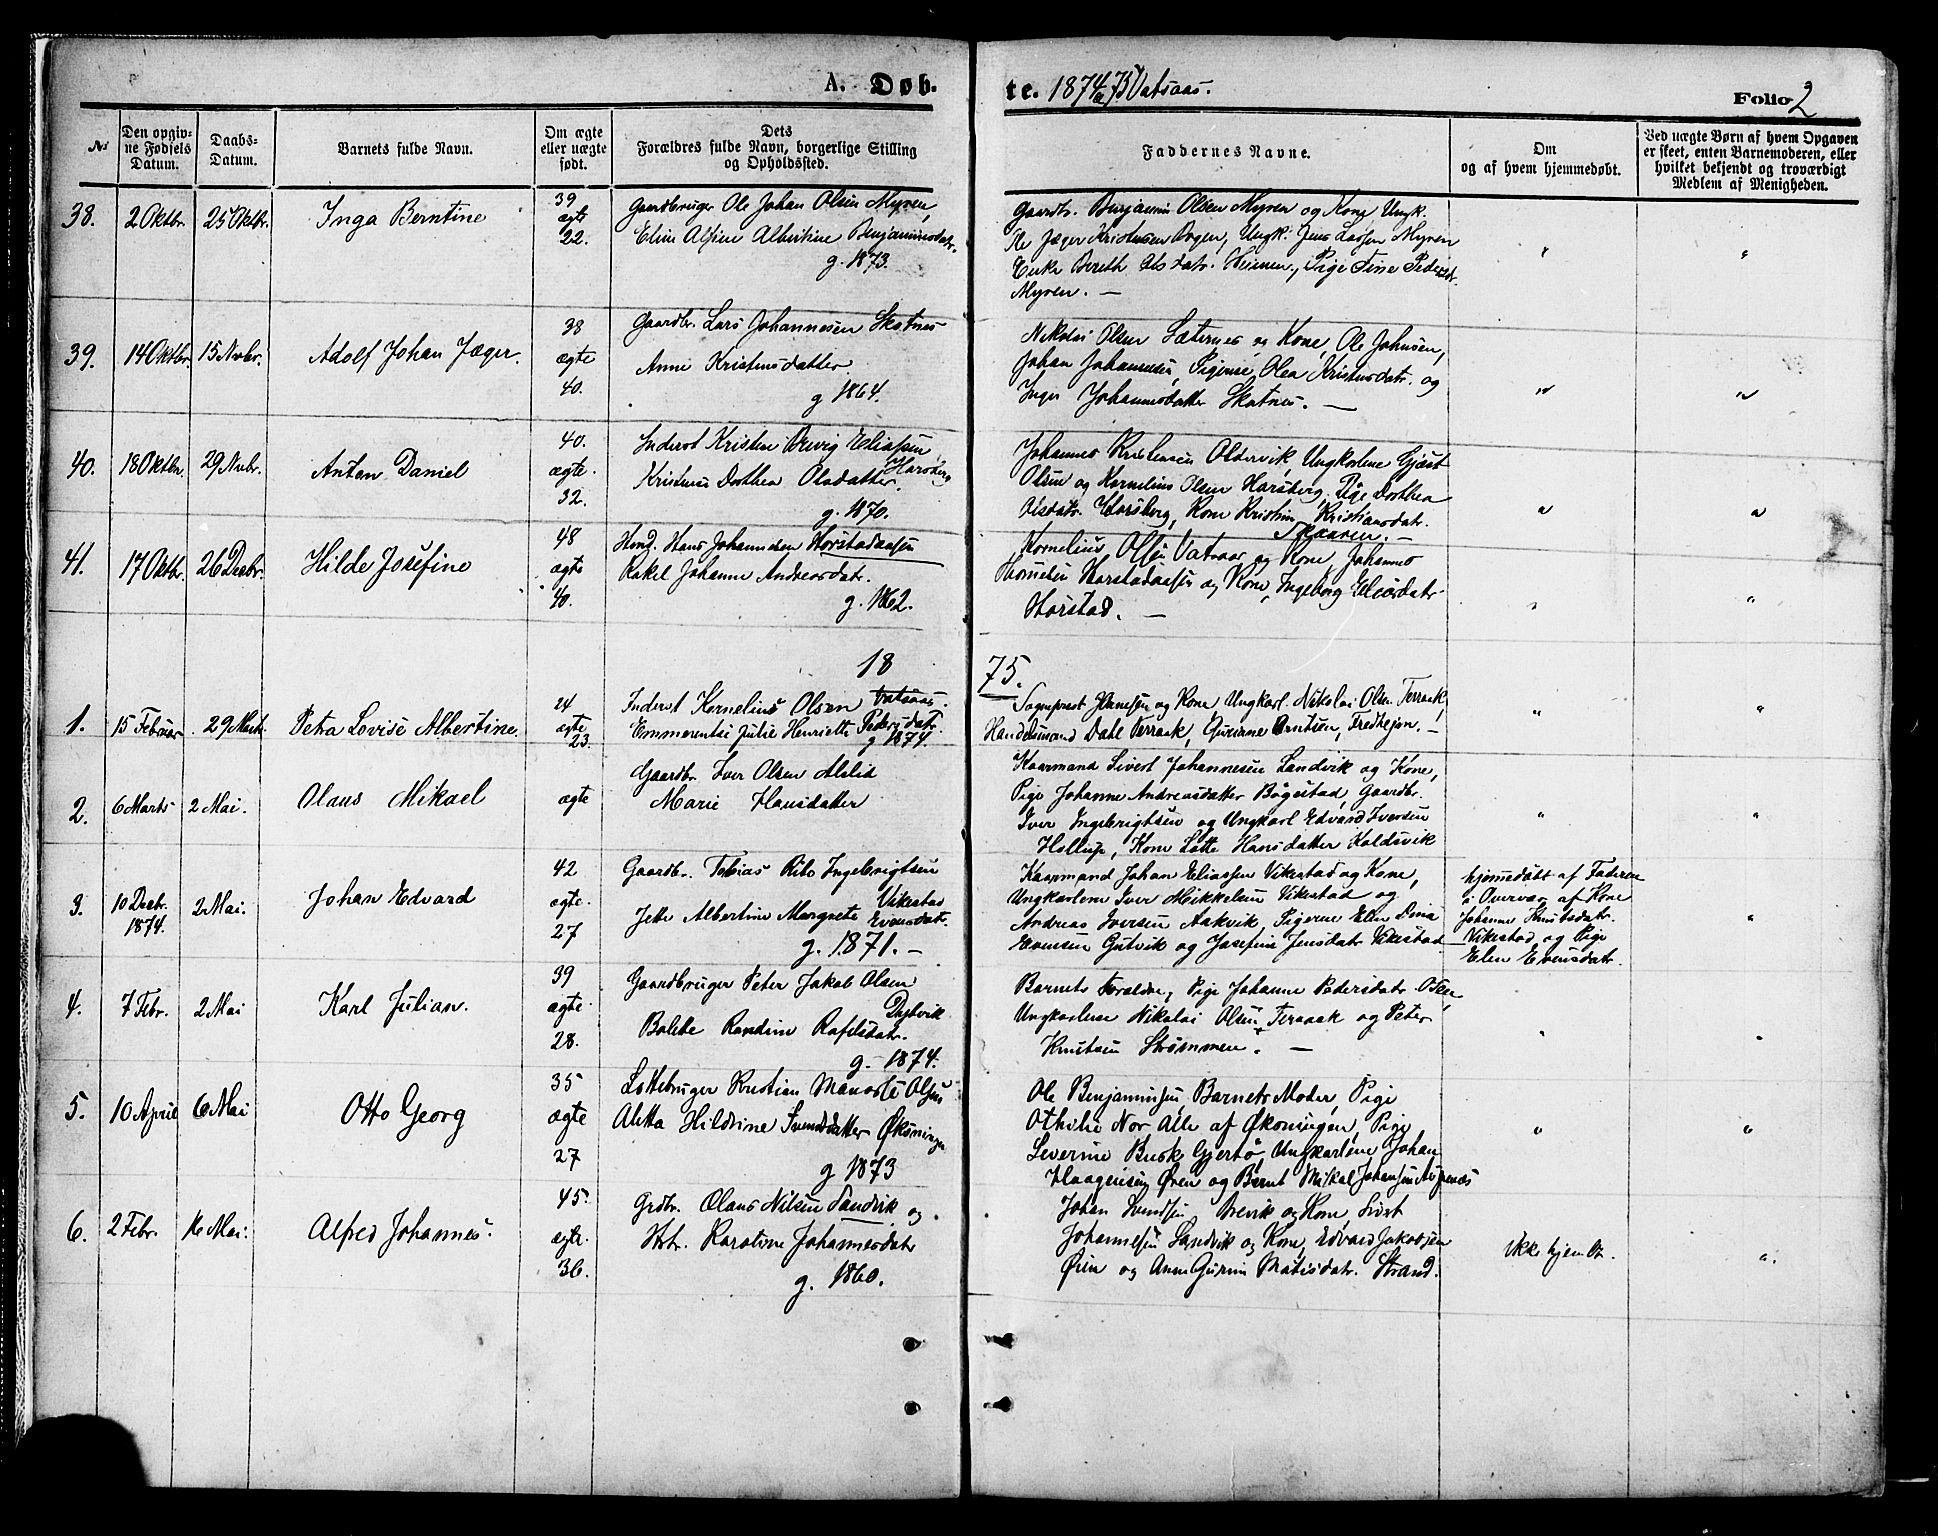 A. Døb-
te. 1874 a 75 Vatsaas.
Folio 2
№
Den opgivne Fødsels Datum.
Daabs-Datum.
Barnets fulde Navn.
Om ægte eller uægte født.
Dets Forældres fulde Navn, borgerlige Stilling og Opholdssted.
Faddernes Navne.
Om og af hvem hjemmedøbt.
Ved uægte Børn af hvem Opgaven er skeet, enten Barnemoderen, eller hvilket bekjendt og troværdigt Medlem af Menigheden.
38. 2 Oktbr. 25 Oktbr. Inga Berntine
39 ægte 22.
Gaardbruger Ole Johan Olsen Myren,
Elen Albertine Benjaminsdatr.
g. 1873.
Gaardbr. Benjamin Olsen Myren og Kone Ungk.
Jæger Kristensen Ungk. Jens Myren
Bereth Olsdatr. Pige Tine Pedersdtr.
Myren. —
39. 14 Oktbr. 15 Nvbr. Adolf Johan Jæger.
38 ægte 40.
Gaardbr. Lars Johannesen Skotnes
Anne Kristensdatter.
g 1864.
Nikolai Olsen Sæternes og Kone, Ole Johnsen,
Johan Johannesen, Pigerne Olea Kristensdatr. og
Inger Johannesdatter Skotnes. —
40. 18 Oktbr. 29 Nvbr. Anton Daniel
40. ægte. 32.
Inderst Kristen Eliassen
Horsberg
Dorthea Olsdatter.
g. 1870.
Johannes Kristensen Oldervik, Ungkarlene Gjest
Olsen og Kornelius Olsen Horsberg. Pige Dorthea
Olsdatr. Horsberg, Kone Kristine Kristiansdatr.
41. 17 Oktbr. 26 Decbr. Hilde Josefine
48 ægte 40.
Hmd. Hans Johannesen Horstadaasen
Rakel Johanne Andreasdatr.
g. 1862.
Kornelius Olsen Vatsaas og Kone, Johannes
Horstadaasen og Kone, Ingeborg
Horstad. —
18
75.
1. 15 Februar. 29 Marts. Petra Lovise Albertine.
24 ægte 23.
Inderst Kornelius Olsen Vatsaas.
Emmerentse Julie Henriette Pedersdatr.
g 1874.
Sogneprest og Kone, Ungkarl. Nikolai Olsen Terraak,
Handelsmand Dahl Terraak, Guriane Fredheim. —
2. 6 Marts 2 Mai. Olaus Mikael
ægte
Gaardbr. Iver Olsen
Marie Hansdatter
Kaarmand Sivert Johannesen Sandvik og Kone,
Pige Johanne Andreasdatter Bøgestad, Gaardbr.
Iver Ingebrigtsen og Ungkarl Edvard Iversen
Hollup, Kone Lotte Hansdatter Koldsvik
3. 10 Decbr. 1874. 2 Mai. Johan Edvard
42 ægte. 27
Gaardbr. Tobias Ribo Ingebrigtsen
Vikestad
Jette Albertine Margrete Evensdatr.
g. 1871. —
Kaarmand Johan Eliassen Vikestad og Kone,
Ungkarlene Iver Mikkelsen Vikestad og
Andreas Iversen Aakvik, Pigerne Elen Dina
Gutvik og Josefine Jensdatr Vikestad
hjemmedøbt af Faderen
i Overvær af Kone
Johanne Knutsdatr.
Vikestad og Pige
Elen Evensdatr.
4. 7 Febr. 2 Mai Karl Julian.
39 ægte. 28.
Gaardbruger Peter Jakob Olsen
Dybvik
Bolette Randine Rafelsdatr.
g. 1874.
Barnets Forældre, Pige Johanne Pedersdatr Osen,
Ungkarlene Nikolai Olsen Terraak og Peter
Knutsen Strømmen. —
5. 10 April 6 Mai Otto Georg
35 ægte 27
Kristian Olsen
Aletta Hildrine Svendsdatter Økoningen
g 1873
Ole Benjaminsen, Barnets Moder, Pige
Othilie af Økoningen, Pige
Severine Busk Gjertø, Ungkarlene Johan
Haagensen Øren og Bernt Mikal Johansen
6. 2 Febr. 16 Mai. Alfred Johannes.
45. ægte. 36.
Grdbr. Olaus Nilsen Sandvik og
Hstr. Karoline Johannesdatr
g. 1860.
Johan Svendsen og Kone Sivert
Johannesen Sandvik og Kone, Edvard Jakobsen
Øren og Anne Gurine Matisdatr. Strand.
Ikke hjemdt.